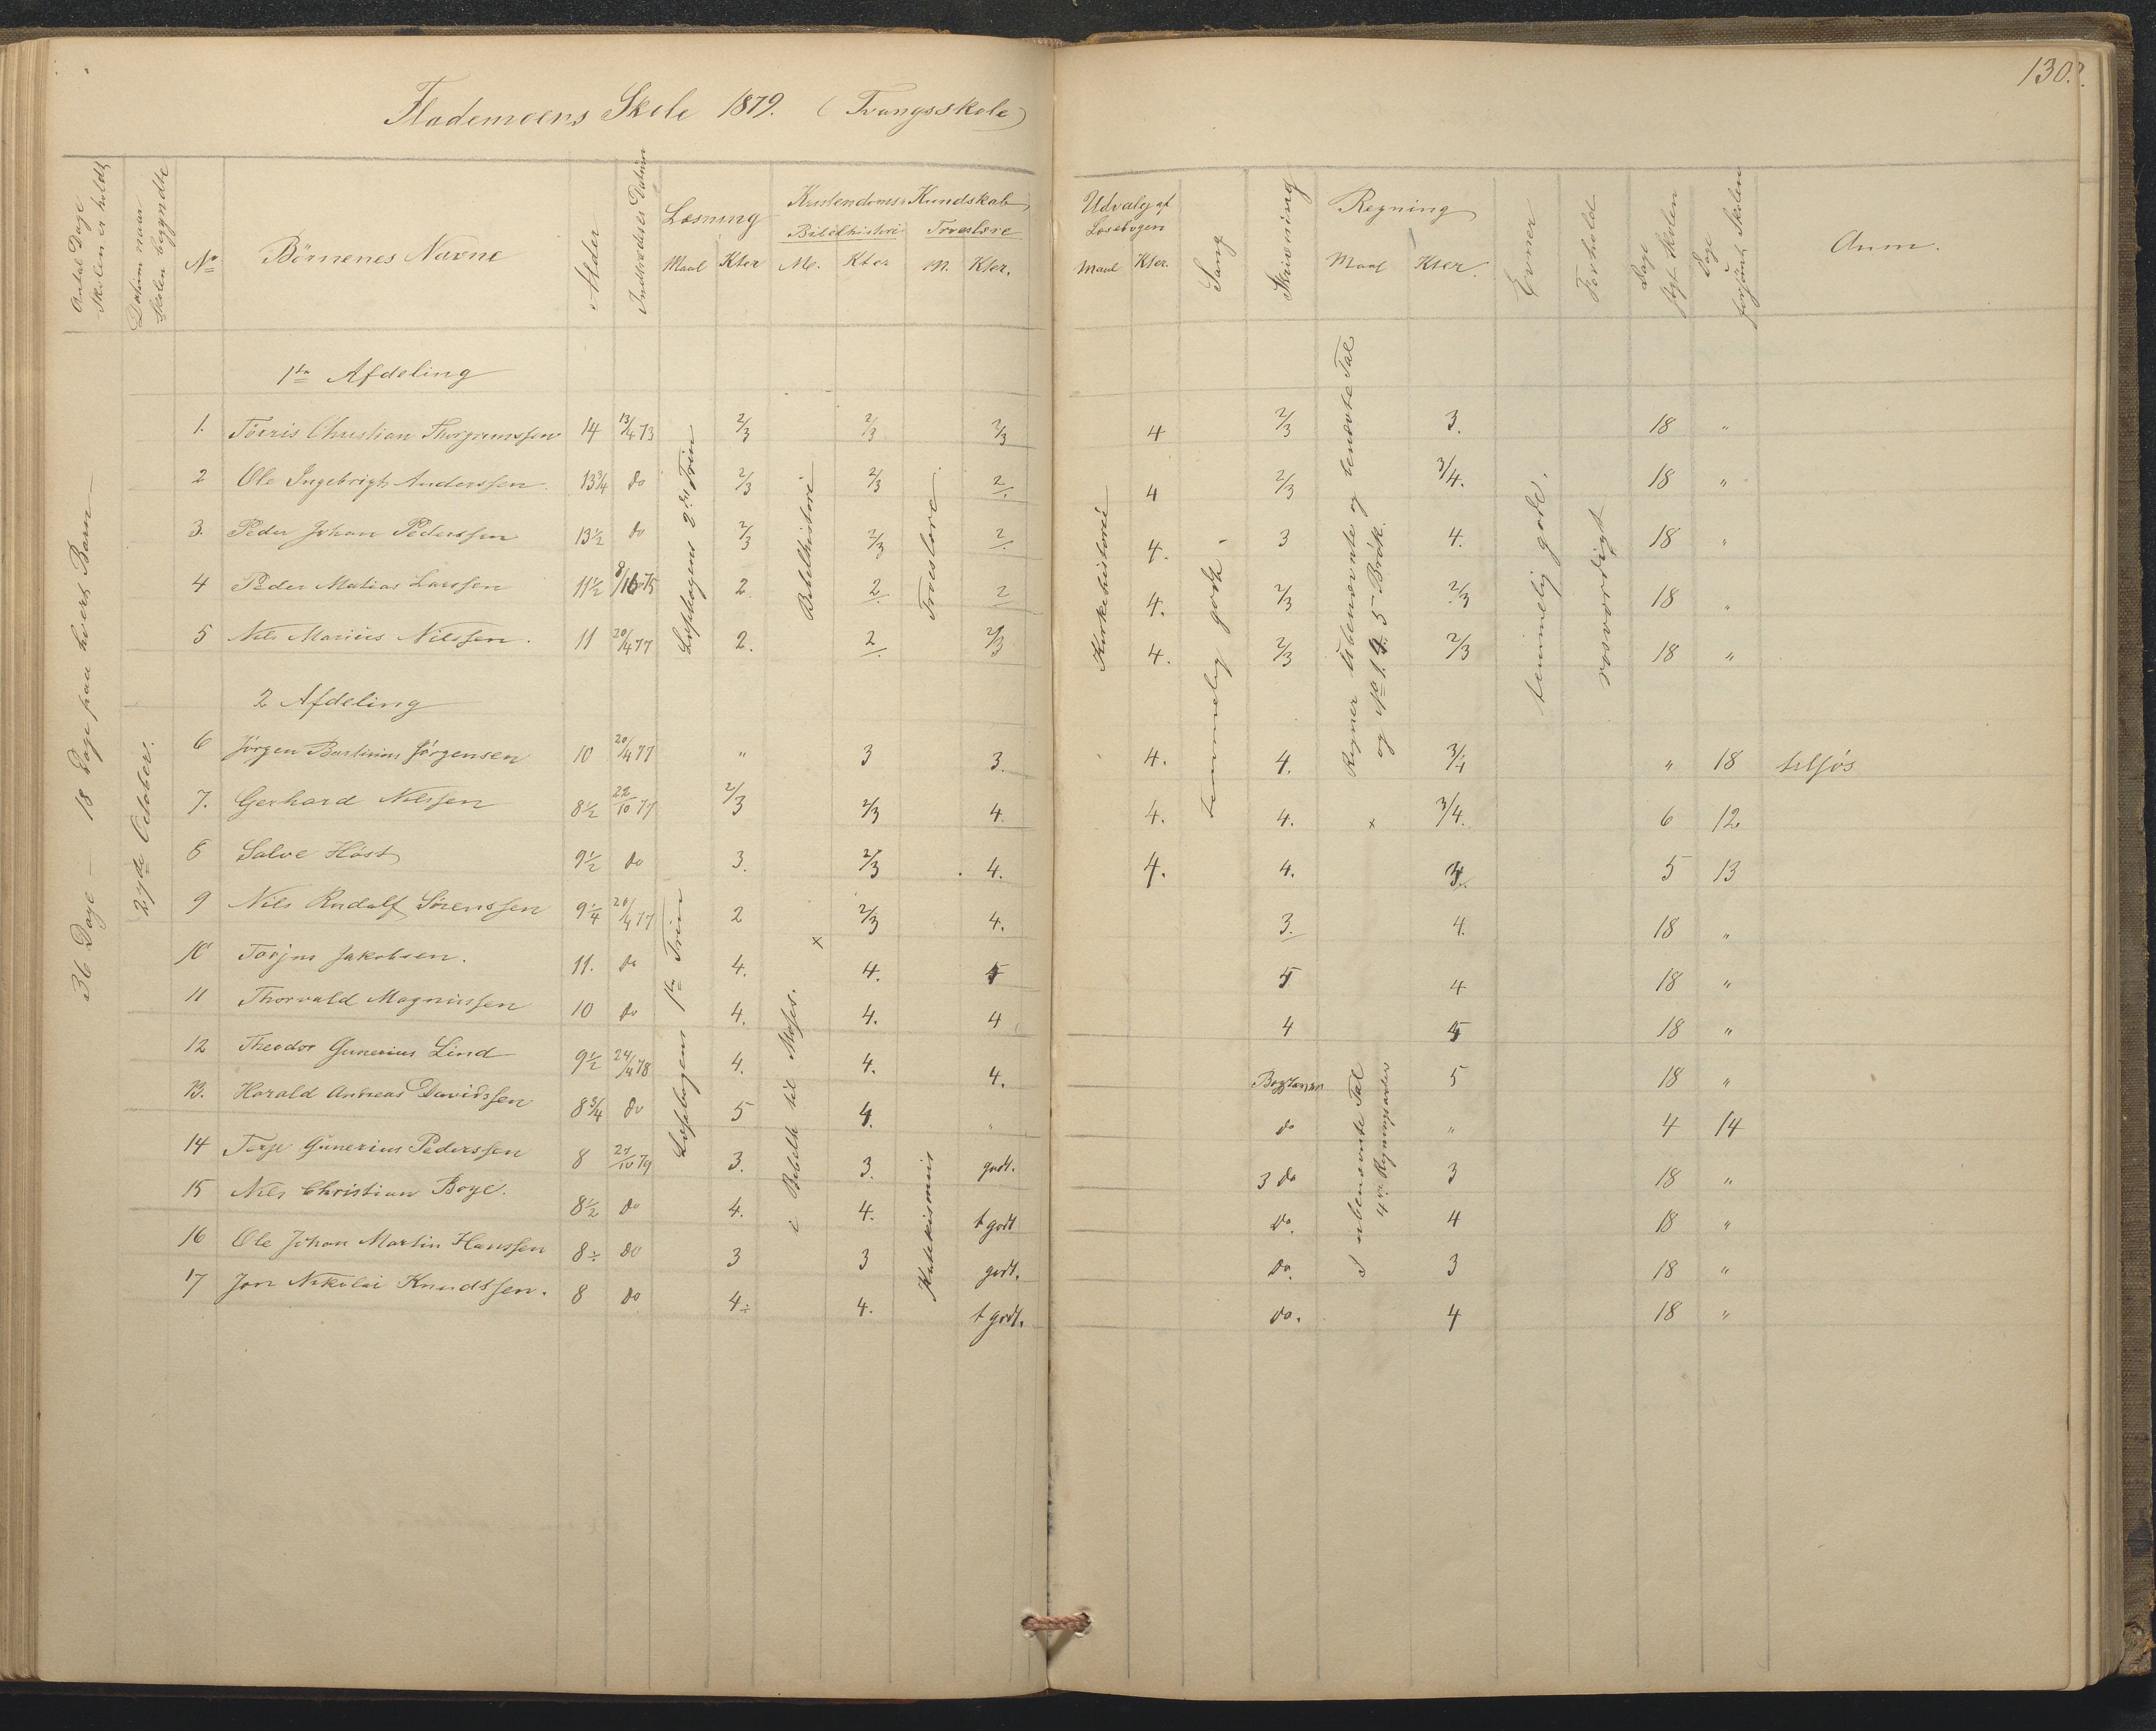 130.
Flademoens Skole 1879. (Tvangsskole)
Antal Dage Skolen er holdt
Datum naar Skolen begyndte
No
Börnenes Navne
Alder
Indtrædelses Datum
Læsning
Maal Kter
Kristendoms Kundskab
Bibelhistorie
M. Kter
Troeslære
M. Kter.
Udvalg af Læsebogen
Maal Kter.
Sang
Skrivning
Regning
Maal Kter.
Evner
Forhold
Dage søgt Skolen
Dage forsömt Skolen
Anm.
36 Dage — 18 Dage paa hvert Barn
27de October.
1ste Afdeling
1. Törris Christian Thorgrimssen 14 13/4 73 2/3 2/3 2/3 4 2/3 3. 18 "
2 Ole Ingebrigt Anderssen. 13 3/4 do 2/3 2/3 2. 4 2/3 3/4. 18 "
3. Peder Johan Pederssen 13 1/2 do 2/3 2/3 2. 4. 3 4. 18 "
4 Peder Matias Larssen 11 1/2 8/10 75 2. 2. 2 4. 2/3 2/3 18 "
5 Nils Marius Nilssen. 11 20/4 77 2. 2. 2/3 4. 2/3 2/3 18 "
2 Afdeling
6 Jörgen Bastinius Jörgensen 10 20/4 77 " 3 3. 4. 4. 3/4 " 18 tilsjös
7. Gerhard Nilssen 8 1/2 22/10 77 2/3 2/3 4. 4. 4. 3/4. 6 12
8 Salve Höst 9 1/2 do 3. 2/3 4. 4. 4. 5 13
9 Nils Rudolf Sörenssen 9 1/4 20/4 77 2 2/3 4. 3. 4. 18 "
10 Torjus Jakobsen. 11. do 4. 4. 5 5 4 18 "
11 Thorvald Magnussen 10 do 4. 4. 4 4 5 18 "
12 Theodor Gunerius Lind 9 1/2 24/4 78 4. 4. 4. 5 18 "
13. Harald Andreas Davidssen 8 3/4 do 5 4. " do " 4 14
14 Terje Gunerius Pederssen 8 27/10 79 3. 3. godt. 3 do 3 18 "
15 Nils Christian Boye. 8 1/2 do 4. 4. t godt do. 4 18 "
16 Ole Johan Martin Hanssen 8 ÷ do 3 3 godt. do. 3 18 "
17 Jon Nikolai Knudtssen. 8 do 4 ÷ 4. t godt. do. 4 18 "
Læsebogens 2det Trin
Læsebogens 1ste Trin
Bibelhistorie
i Bibelh til Moses.
Troeslære
Katekismus
Kirkehistorie
temmelig godt.
Regner ubenævnte og benævnte Tal
og 5 Brök.
I ubenævnte Tal
4 Regningsarter
temmelig gode.
rosværdigt